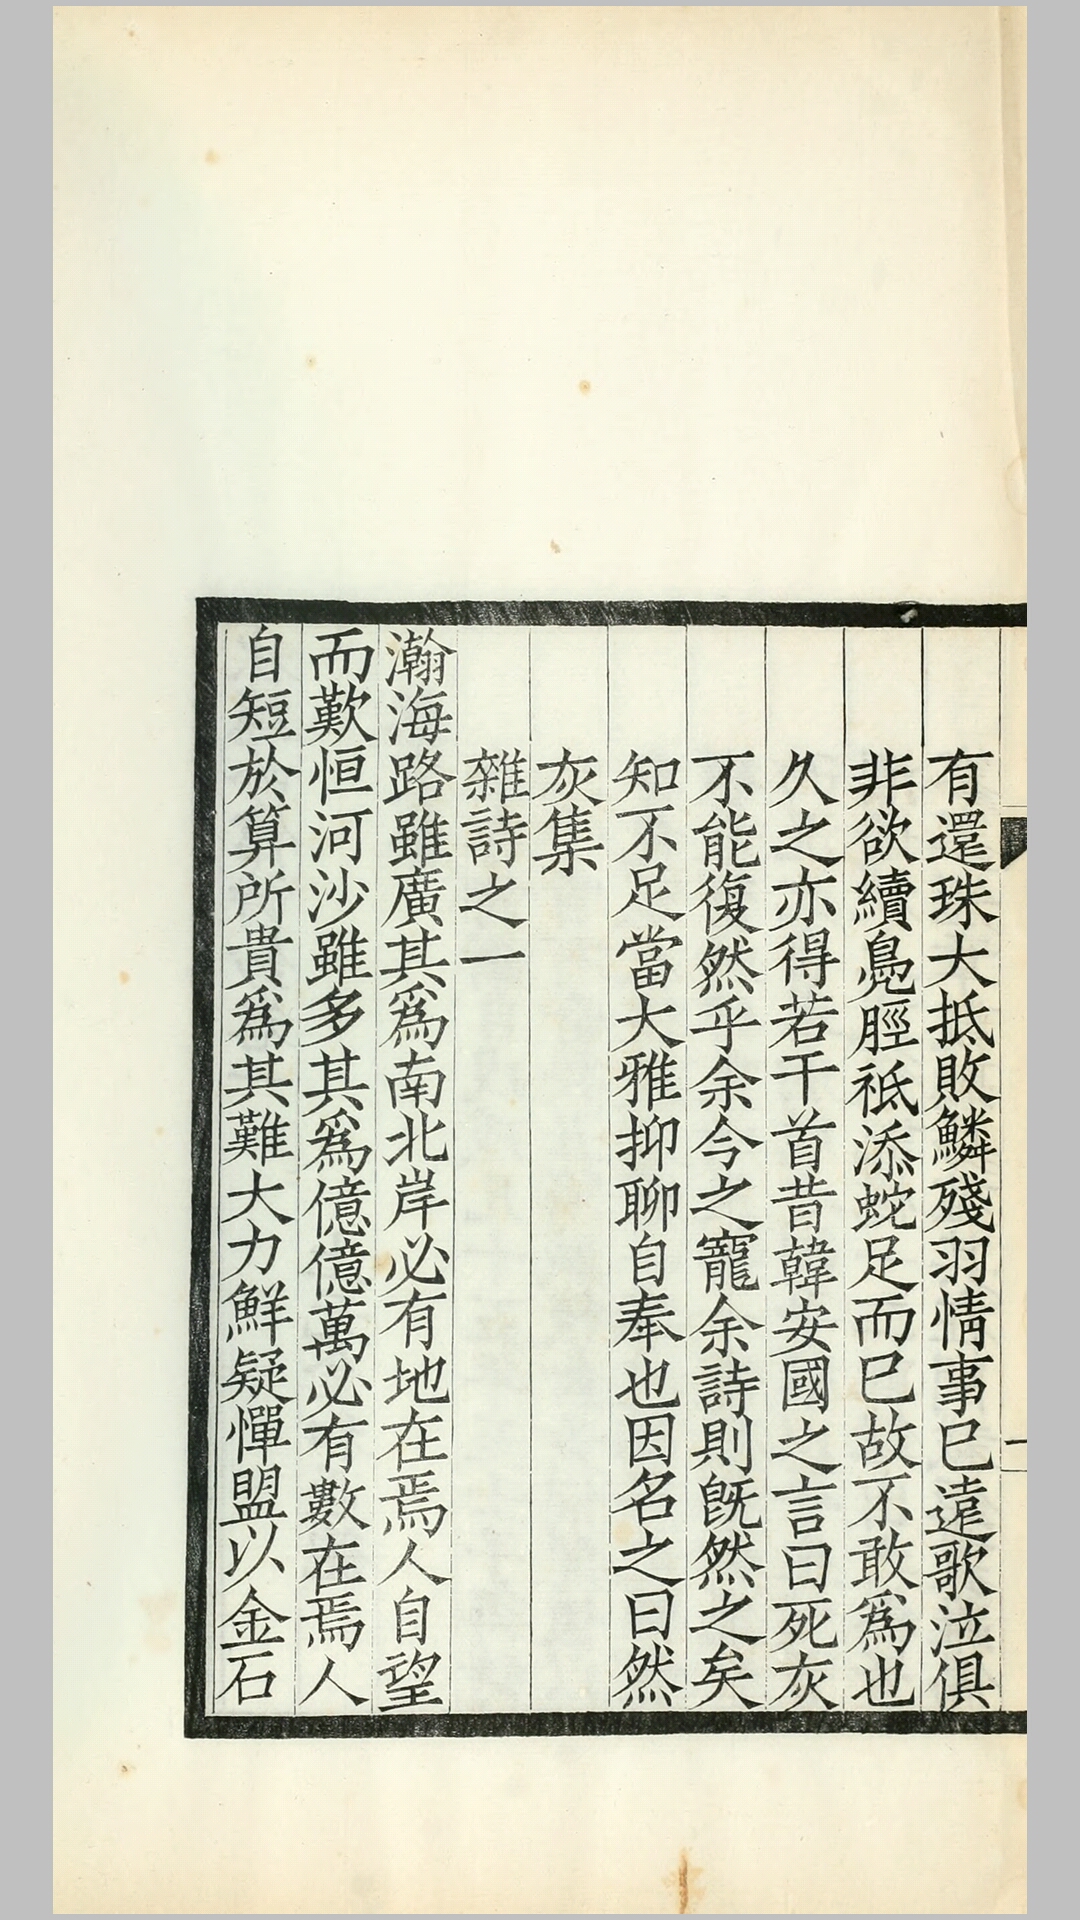 有還珠大抵敗鱗殘羽情事已遠歌泣俱
非欲續鳧脛祗添蛇足而已故不敢爲也
久之亦得若干首昔韓安國之言曰死灰
不能復然乎余今之寵余詩則旣然之矣
知不足當大雅抑聊自奉也因名之曰然
灰集
雜詩之一
瀚海路雖廣其爲南北岸必有地在焉人自望
而歎恒河沙雖多其爲億億萬必有數在焉人
自短於算所貴爲其難大力鮮疑憚盟以金石